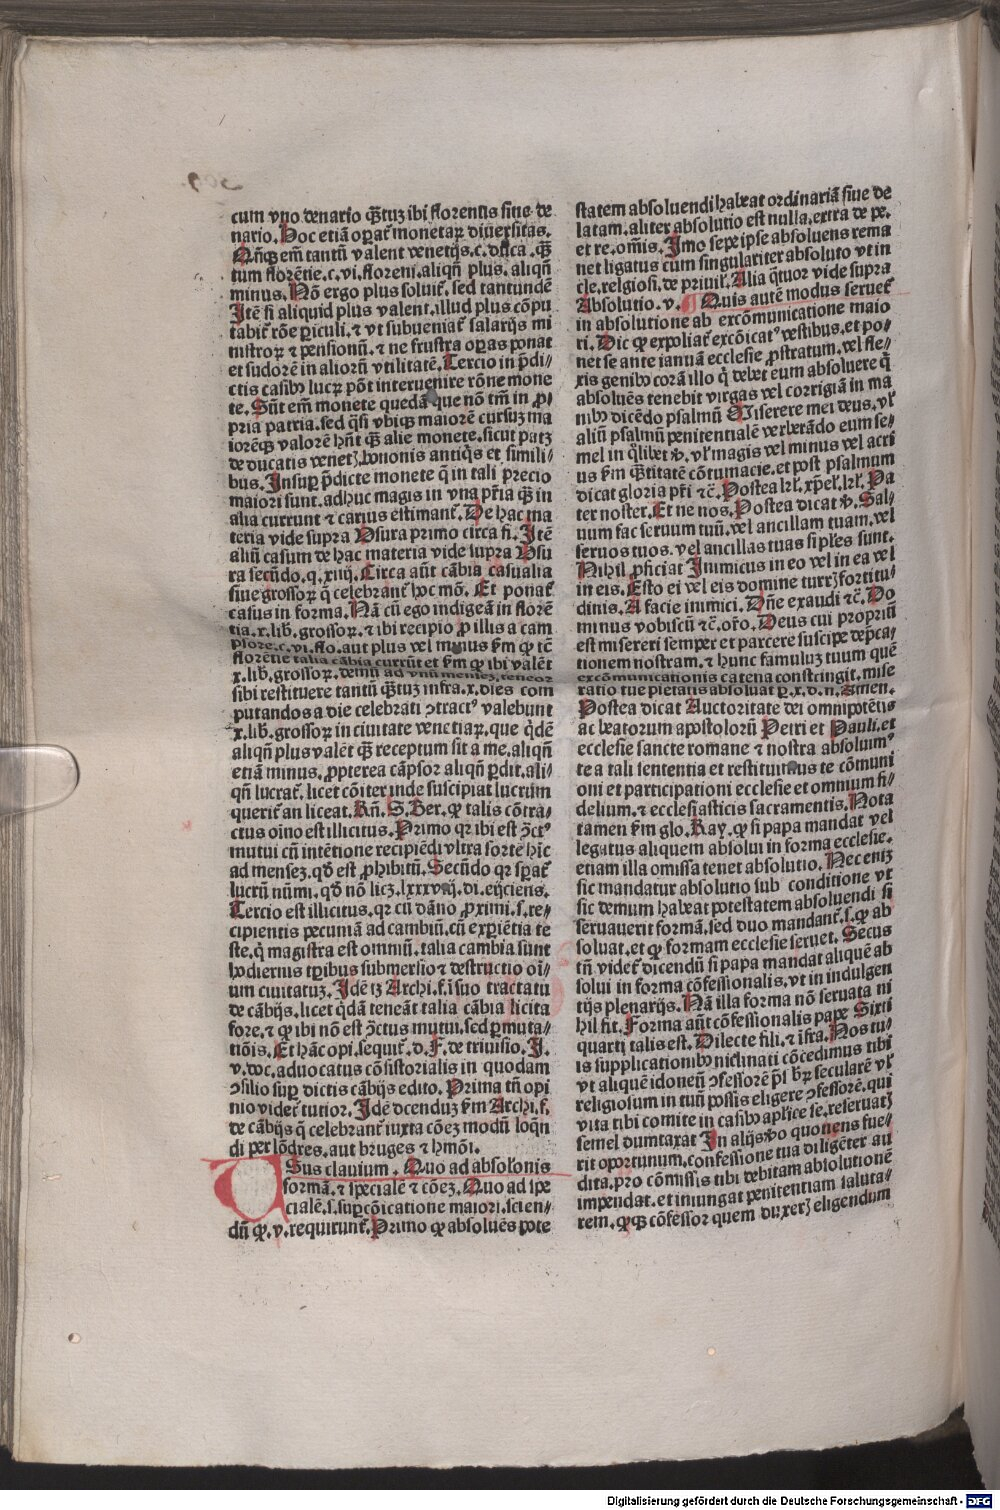 cum vno denario qȝtuz ibi florentis siue de
nario. Hoc etiã opat᷑ monetaꝝ diuersitas.
Qñqꝫ em̃ tantũ valent venetijs. c. duca. qȝ
tum florẽtie. c. vi. floreni. aliqñ plus. aliqñ
minus. Nõ ergo plus soluit᷑. sed tantundẽ
Itẽ si aliquid plus valent. illud plus cõpu
tabit᷑ rõe ꝑiculi. ⁊ vt subueniat᷑ salarijs mi
nistroꝝ ⁊ pensionũ. ⁊ ne frustra oꝑas ponat
et sudorẽ in alioꝝ vtilitatẽ. Tercio in p̃di⸗
ctis casibꝰ lucꝝ põt interuenire rõne mone
te. Sũt em̃ monete quedã que nõ tm̃ in ꝓ⸗
pria patria. sed q̃si vbiqꝫ maiorẽ cursuꝫ ma
iorẽqꝫ valorẽ hñt qȝ alie monete. sicut patꝫ
de ducatis venetꝫ. bononis antiq̃s et simili⸗
bus. Insuꝑ p̃dicte monete q̃ in tali precio
maiori sunt. adhuc magis in vna pr̃ia qȝ in
alia currunt ⁊ carius estimant᷑. De hac ma
teria vide supra Usura primo circa fi. Itẽ
aliũ casum de hac materia vide supra Usu
ra secũdo. q. xiiij. Circa aũt cãbia casualia
siue grossoꝝ q̃ celebrant᷑ hoc mõ. Et ponat᷑
casus in forma. Nã cũ ego indigeã in florẽ
tia. x. lib. grossoꝝ. ⁊ ibi recipio ꝓ illis a cam
psore. c. vi. flo. aut plus vel minus ẜm ꝙ tẽ
florẽtie talia cãbia currũt et ẜm ꝙ ibi valẽt
x. lib. grossoꝝ. demũ ad vnũ menseꝫ. teneor
sibi restituere tantũ qȝtuꝫ infra. x. dies com
putandos a die celebrati ↄtractꝰ valebunt
x. lib. grossoꝝ in ciuitate venetiaꝝ. que q̃dẽ
aliqñ plus valẽt qȝ receptum sit a me. aliqñ
etiã minus. ꝓpterea cãpsor aliqñ ꝑdit. ali⸗
qñ lucrat᷑. licet cõiter inde suscipiat lucrum
querit᷑ an liceat. Rñ. S. Ber. ꝙ talis cõtra⸗
ctus oĩno est illicitus. Primo qꝛ ibi est ↄ̃ctꝰ
mutui cũ intẽtione recipiẽdi vltra sortẽ hĩc
ad menseꝫ. qd̾ est ꝓhibitũ. Secũdo qꝛ sꝑat᷑
lucrũ nũmi. qd̾ nõ licꝫ. lxxxviij. di. eijciens.
Tercio est illicitus. qꝛ cũ dãno ꝓximi. s. re⸗
cipientis pecuniã ad cambiũ. cũ exꝑiẽtia te
ste. q̃ magistra est omniũ. talia cambia sunt
hodiernis tꝑibus submersio ⁊ destructio oĩ⸗
um ciuitatuꝫ. Idẽ tꝫ Archi. f. ĩ suo tractatu
de cãbijs. licet q̃dã teneãt talia cãbia licita
fore. ⁊ ꝙ ibi nõ est ↄ̃ctus mutui. sed ꝑmuta⸗
tiõis. Et hãc opi. sequit᷑. d. F. de triuisio. J.
v. doc. aduocatus cõsistorialis in quodam
ↄsilio suꝑ dictis cãbijs edito. Prima tñ opi
nio videt᷑ tutior. Idẽ dcenduꝫ ẜm Archi. f.
de cãbijs q̃ celebrant᷑ iuxta cõeꝫ modũ loq̃n
di per lõdres. aut bruges ⁊ hmõi.
Usus clauium. Quo ad absolonis
formã. ⁊ specialẽ ⁊ cõeꝫ. Quo ad spe
cialẽ. s. suꝑ cõicatione maiori. scien⸗
dũ ꝙ. v. requirunt᷑. Primo ꝙ absoluẽs pote
statem absoluendi habeat ordinariã siue de
latam. aliter absolutio est nulla. extra de pe.
et re. om̃is. Imo sepe ipse absoluens rema
net ligatus cum singulariter absoluto vt in
cle. religiosi. de priuil᷑. Alia q̃tuor vide supra
Absolutio. v. ¶ Quis autẽ modus seruet᷑
in absolutione ab excõmunicatione maio
ri. Dic ꝙ expoliat᷑ excõicatꝰ vestibus. et po⸗
net se ante ianuã ecclesie ꝓstratum. vel fle⸗
xis genibꝰ corã illo q̃ debet eum absoluere q̃
absoluẽs tenebit virgas vel corrigiã in ma
nibꝰ dicẽdo psalmũ Miserere mei deus. vl᷑
aliũ psalmũ penitentialẽ verberãdo eum se⸗
mel in q̃libet ꝟ. vl᷑ magis vel minus vel acri
us ẜm q̃titatẽ cõtumacie. et post psalmum
dicat gloria pr̃i ⁊c̃. Postea kyrl᷑. xp̃el᷑. kyrl᷑. Pa
ter noster. Et ne nos. Postea dicat ꝟ. Sal⸗
uum fac seruum tuũ. vel ancillam tuam. vel
seruos tuos. vel ancillas tuas si ples sunt.
Nihil ꝓficiat Inimicus in eo vel in ea vel
in eis. Esto ei vel eis domine turrꝫ fortitu⸗
dinis. A facie inimici. Dñe exaudi ⁊c̃. Do
minus vobiscũ ⁊c̃. or̃o. Deus cui propriũ
est misereri semper et parcere suscipe dep̃ca⸗
tionem nostram. ⁊ hunc famuluꝫ tuum quẽ
excõmunicationis catena constringit. mise
ratio tue pietatis absoluat ꝑ. x. d. n. Amen.
Postea dicat Auctoritate dei omnipotẽtis
ac beatorum apostolorũ Petri et Pauli. et
ecclesie sancte romane ⁊ nostra absoluimꝰ
te a tali sententia et restituimus te cõmuni
oni et participationi ecclesie et omnium fi⸗
delium. ⁊ ecclesiasticis sacramentis. Nota
tamen ẜm glo. Ray. ꝙ si papa mandat vel
legatus aliquem absolui in forma ecclesie.
etiam illa omissa tenet absolutio. Nec eniꝫ
sic mandatur absolutio sub conditione vt
sic demum habeat potestatem absoluendi si
seruauerit formã. sed duo mandant᷑. s. ꝙ ab
soluat. et ꝙ formam ecclesie seruet. Secus
tñ videt᷑ dicendũ si papa mandat aliquẽ ab
solui in forma cõfessionalis. vt in indulgen
tijs plenarijs. Nã illa forma nõ seruata ni
hil fit. Forma aũt cõfessionalis pape Sixti
quarti talis est. Dilecte fili. ⁊ ĩfra. Nos tu⸗
is supplicationibꝰ inclinati cõcedimus tibi
vt aliquẽ idoneũ ↄfessorẽ p̃l bꝝ secularẽ vl᷑
religiosum in tuũ possis eligere ↄfessorẽ. qui
vita tibi comite in casibꝰ aplice se. reseruatꝫ
semel dumtaxat In alijs ꝟo quotiens fue⸗
rit oportunum. confessione tua diligẽter au
dita. pro cõmissis tibi debitam absolutionẽ
impendat. et iniungat penitentiam saluta⸗
rem. ꝙqꝫ cõfessor quem duxerꝫ eligendum
Digitalisierung gefördert durch die Deutsche Forschungsgemeinschaft - DFG